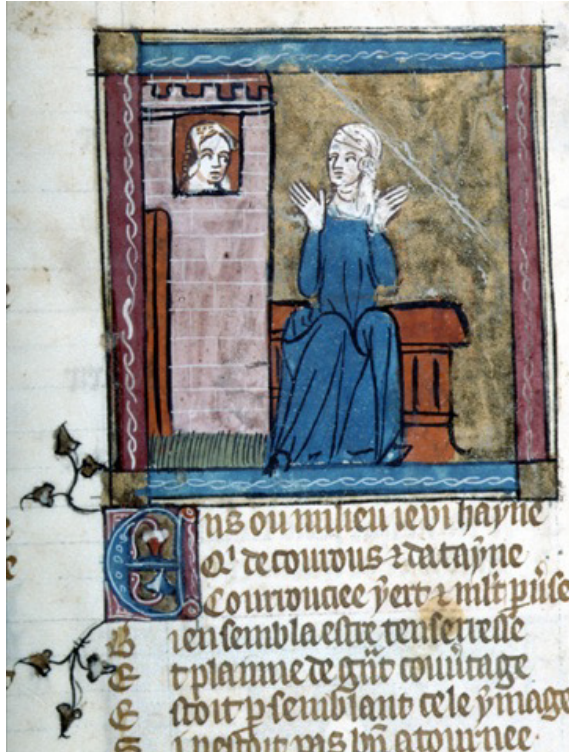 Ens ou milieu ie vi hayne
Qi de courous ⁊ datayne
Courrouciee yert ⁊ mlt puse
Bien sembla estre tenserresse
Et plainne de gnt couuitage
Estoit p semblant cele ymage
Si nestoit pas bn atournee.